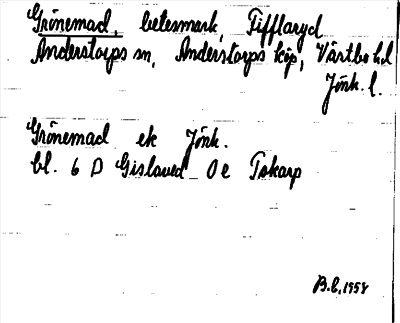 Grönemad, betesmark, Fifflaryd
Anderstorps sn, Anderstorps köp, Västbo hd
Jönk. l.
Grönemad ek Jönk.
bl. 6 D Gislaved 0 e Tokarp
B.E, 1958